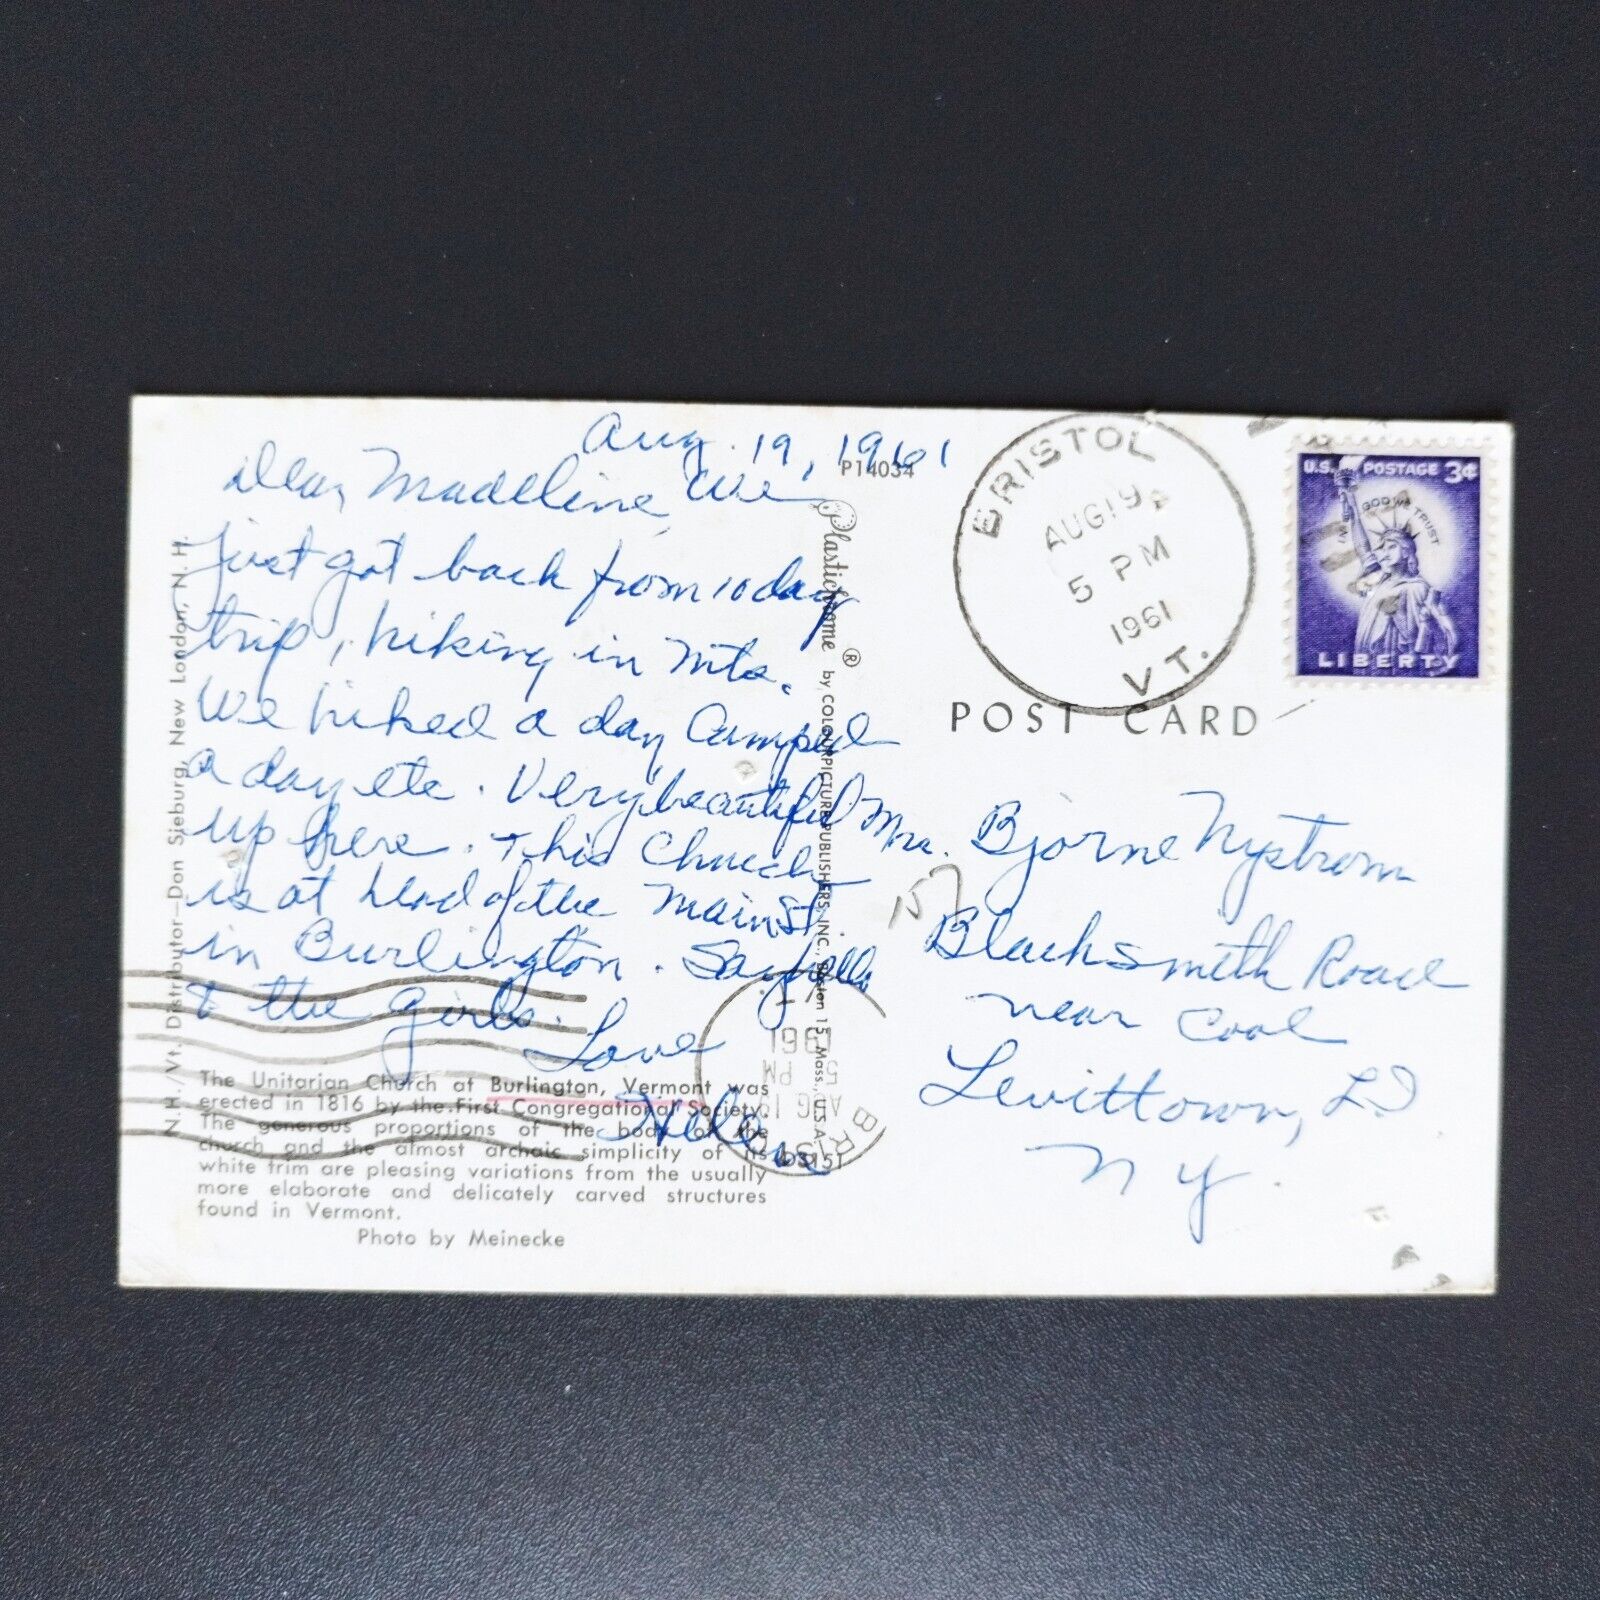 Aug. 19, 1961
P14034
Dear Madeline, We
just got back from 10 day
trip, hiking in Mts.
We hiked a day Camped
a day etc. Very beautiful
up here. This Church
is at head of the Main St
in Burlington. Say hello
to the girls.
Love
Helen
The Unitarian Church at Burlington, Vermont was
erected in 1816 by the First Congregational Society.
The generous proportions of the body of the
church and the almost archaic simplicity of its
white trim are pleasing variations from the usually
more elaborate and delicately carved structures
found in Vermont.
Photo by Meinecke
N.H./Vt. Distributor—Don Sieburg, New London, N. H.
Plastichrome ® by COLOURPICTURE PUBLISHERS, INC., Boston 15, Mass., U.S.A.
BRISTOL
AUG 19
5 PM
1961
VT.
U.S. POSTAGE 3¢
IN GOD WE TRUST
LIBERTY
POST CARD
Mrs. Bjorne Nystrom
157
Blacksmith Road
near Coal
Levittown, L I
N Y.
BRISTOL
AUG 19
5 PM
1961